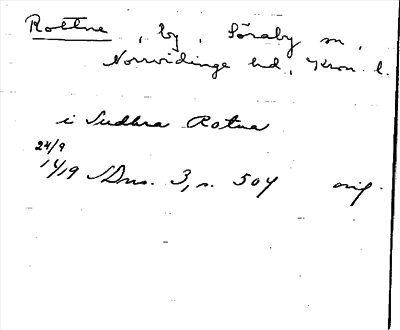 Rottne, by, Söraby sn,
Norrvidinge hd, Kron. l.
i Sudhra Rotna
24/9
1419 SDns. 3, s. 504 orig.